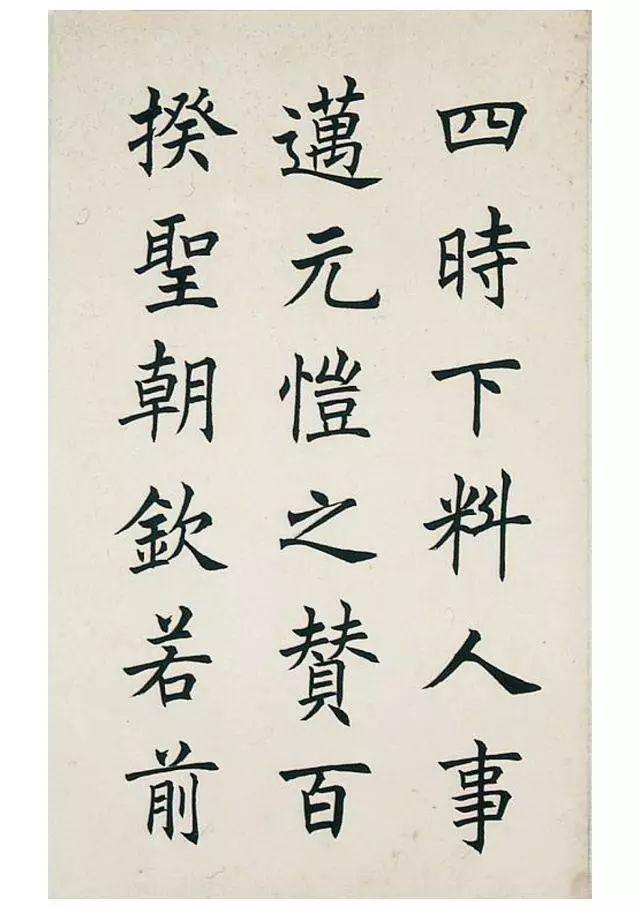 四時下料人事
邁元愷之賛百
揆聖朝欽若前